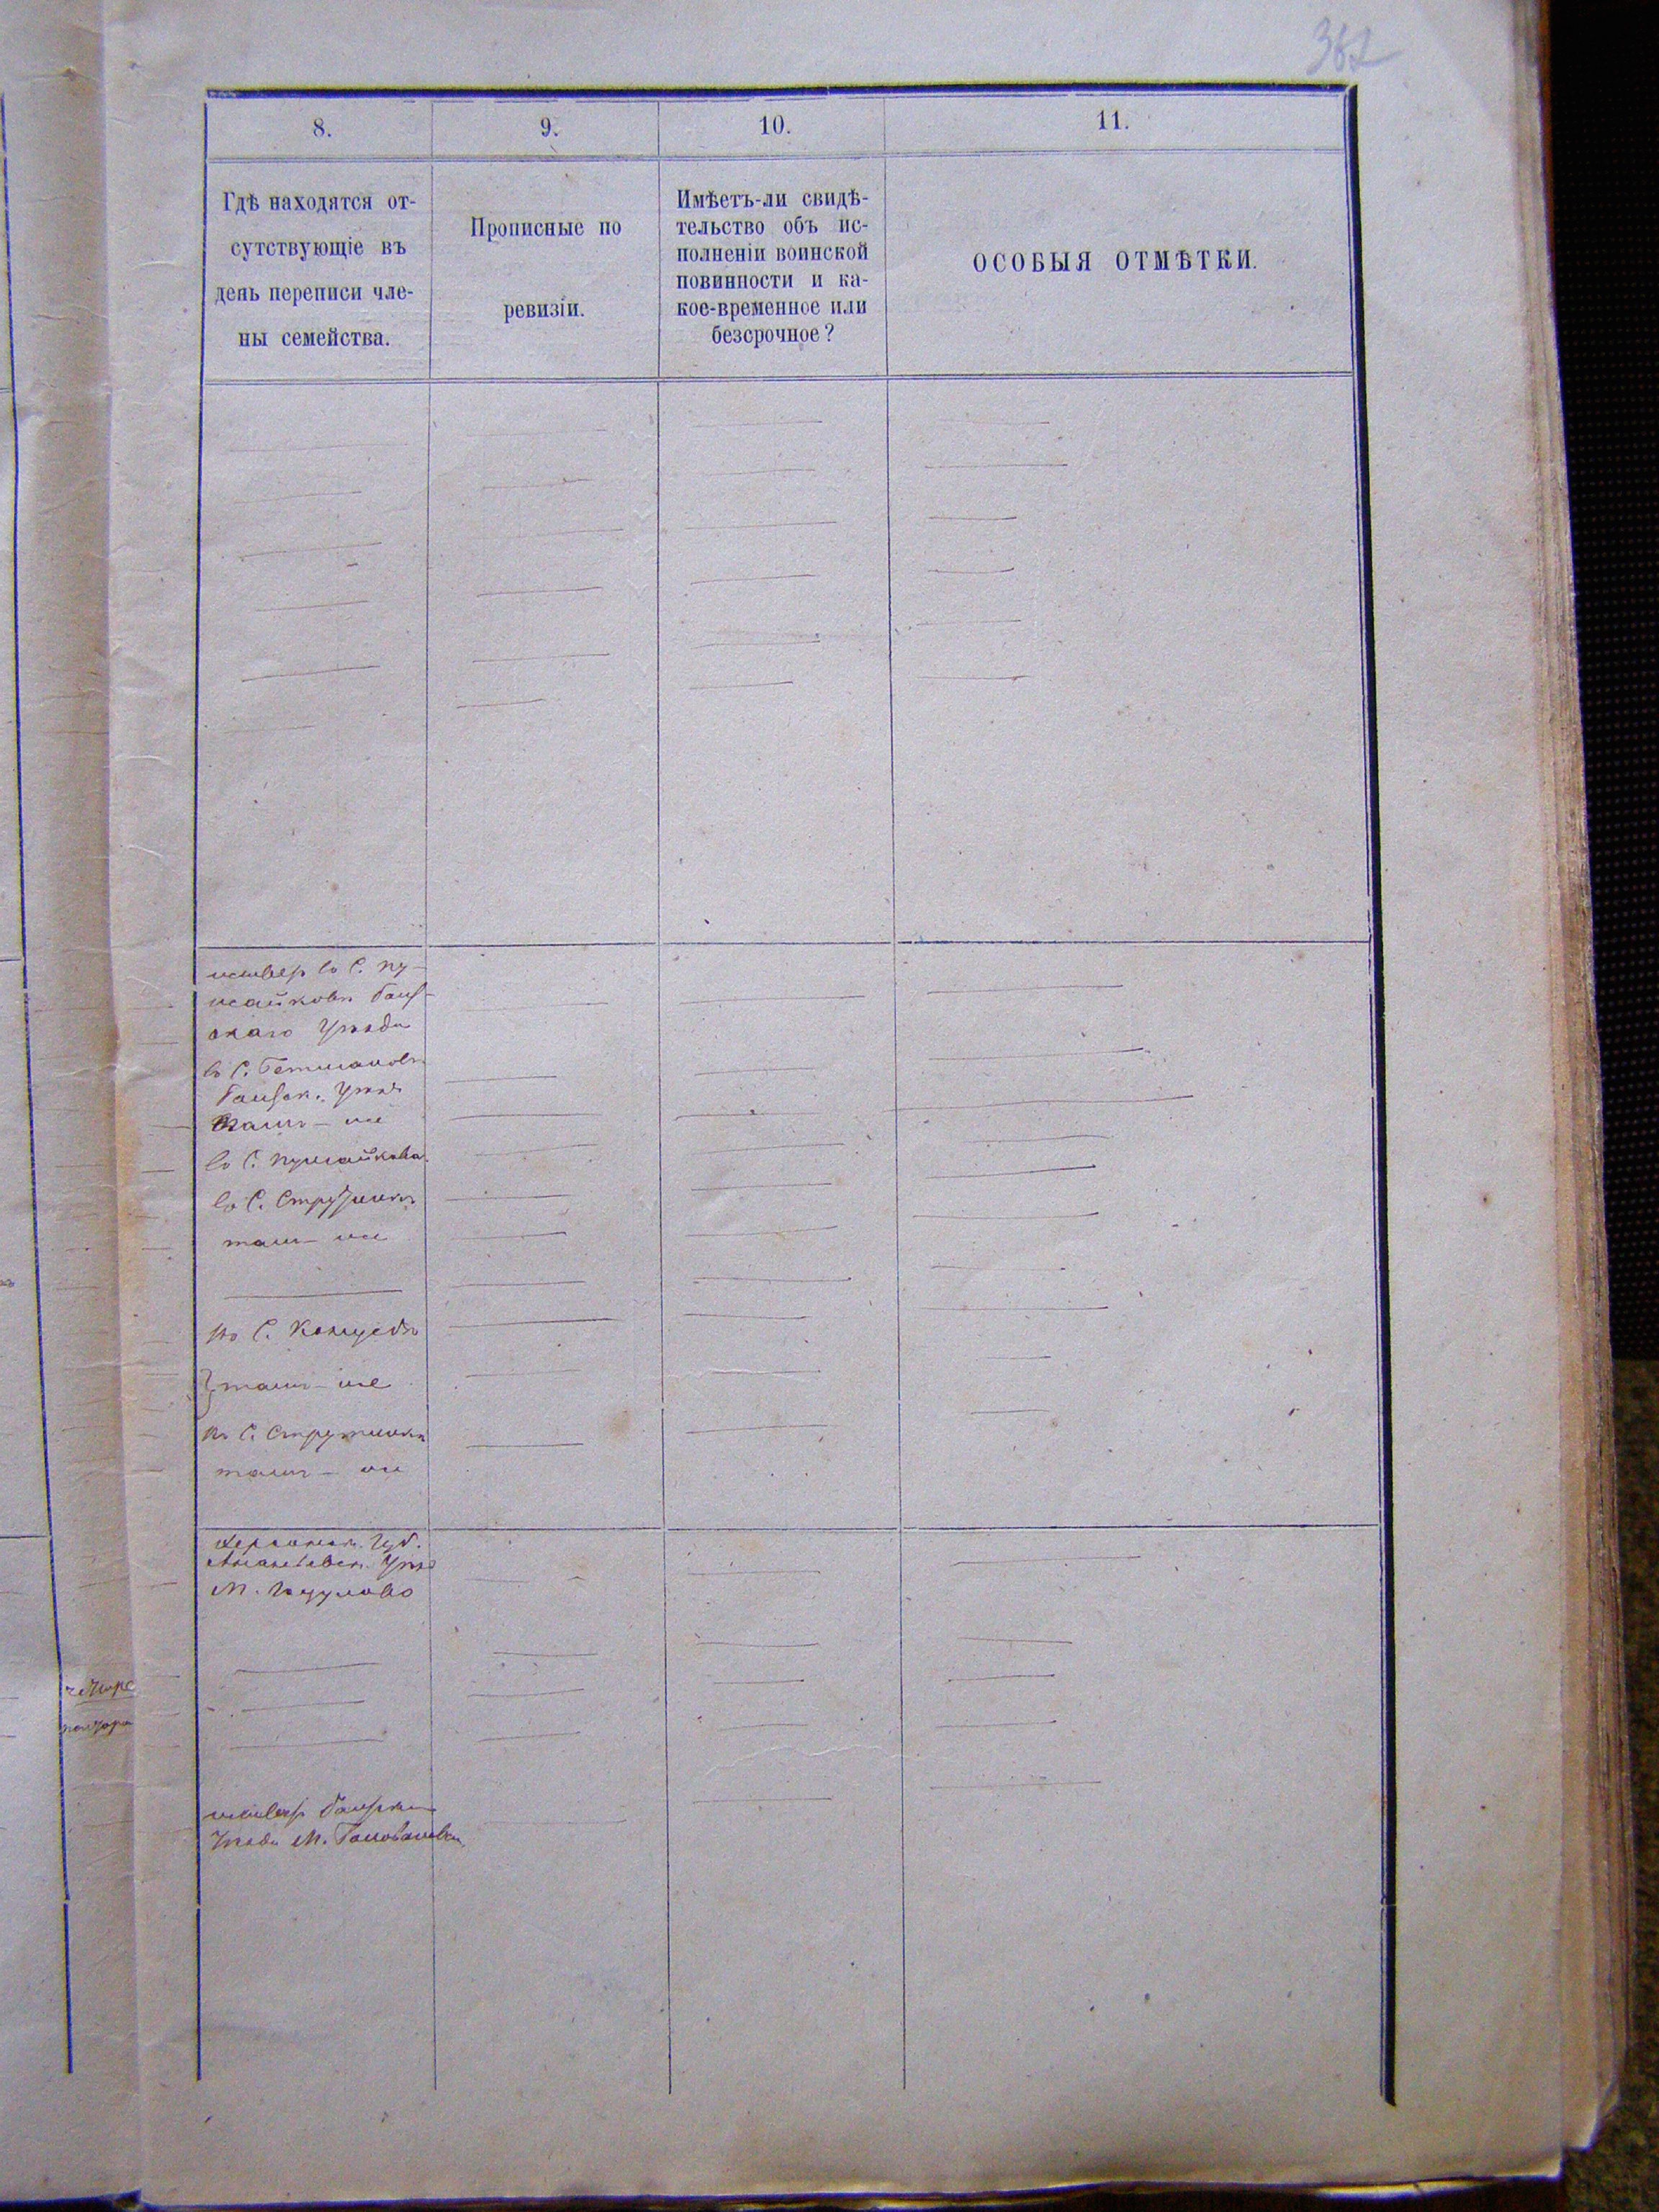 362
8.
9.
10.
11.
Гдѣ находятся от-
сутствующіе въ
день переписи чле-
ны семейства.
Прописные по
ревизіи.
Имѣетъ-ли свидѣ-
тельство объ ис-
полненіи воинской
повинности и ка-
кое-временное или
безсрочное?
ОСОБЫЯ ОТМѢТКИ.
живетъ въ С. Пу-
жайковѣ Балт-
скаго Уѣзда
въ С. Гетмановкѣ
Балтск. Уѣзд
тамъ-же
въ С. Пужайкова
въ С. Струтинкѣ
тамъ-же
въ С.
тамъ-же
въ С. Струтинкѣ
тамъ-же
Херсонск. Губ.
Ананьевск. Уѣз
М.
живетъ Балтскаго
Уѣзда М. Голованевск